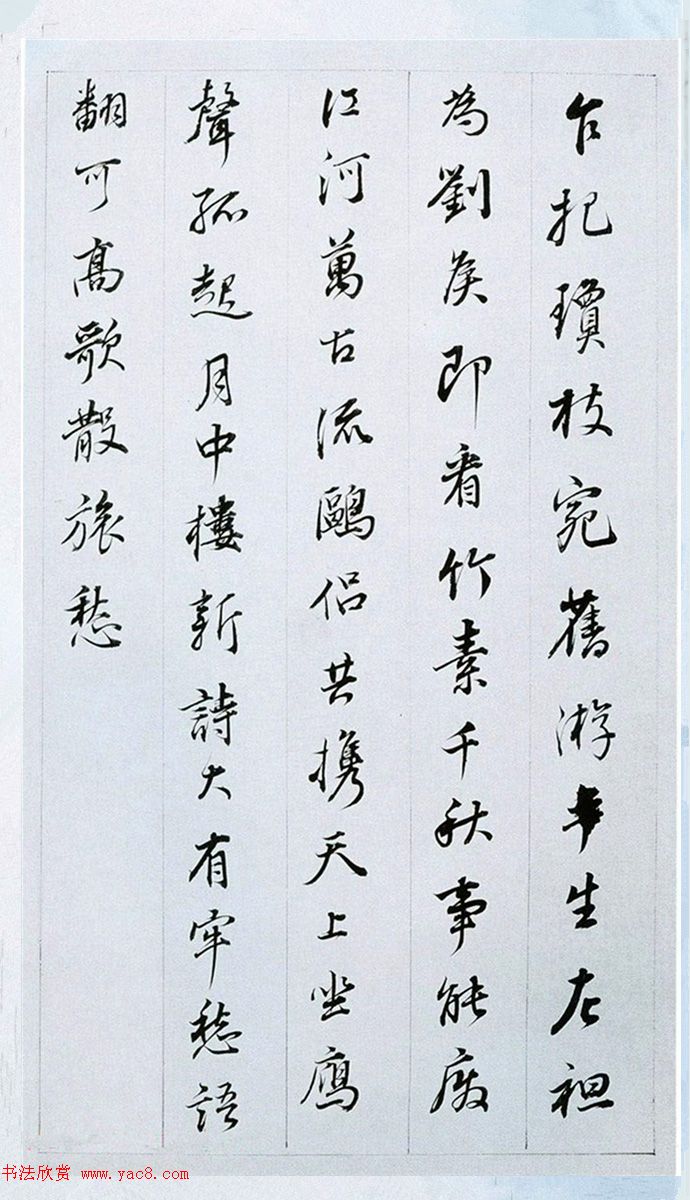 乍把瓊枝宛舊游半生左袒
為劉侯即看竹素千秋事能廢
江河萬古流鷗侣共携天上坐鴈
聲孤起月中樓新詩大有牢愁語
翻可高歌散旅愁
书法欣赏 www.yac8.com